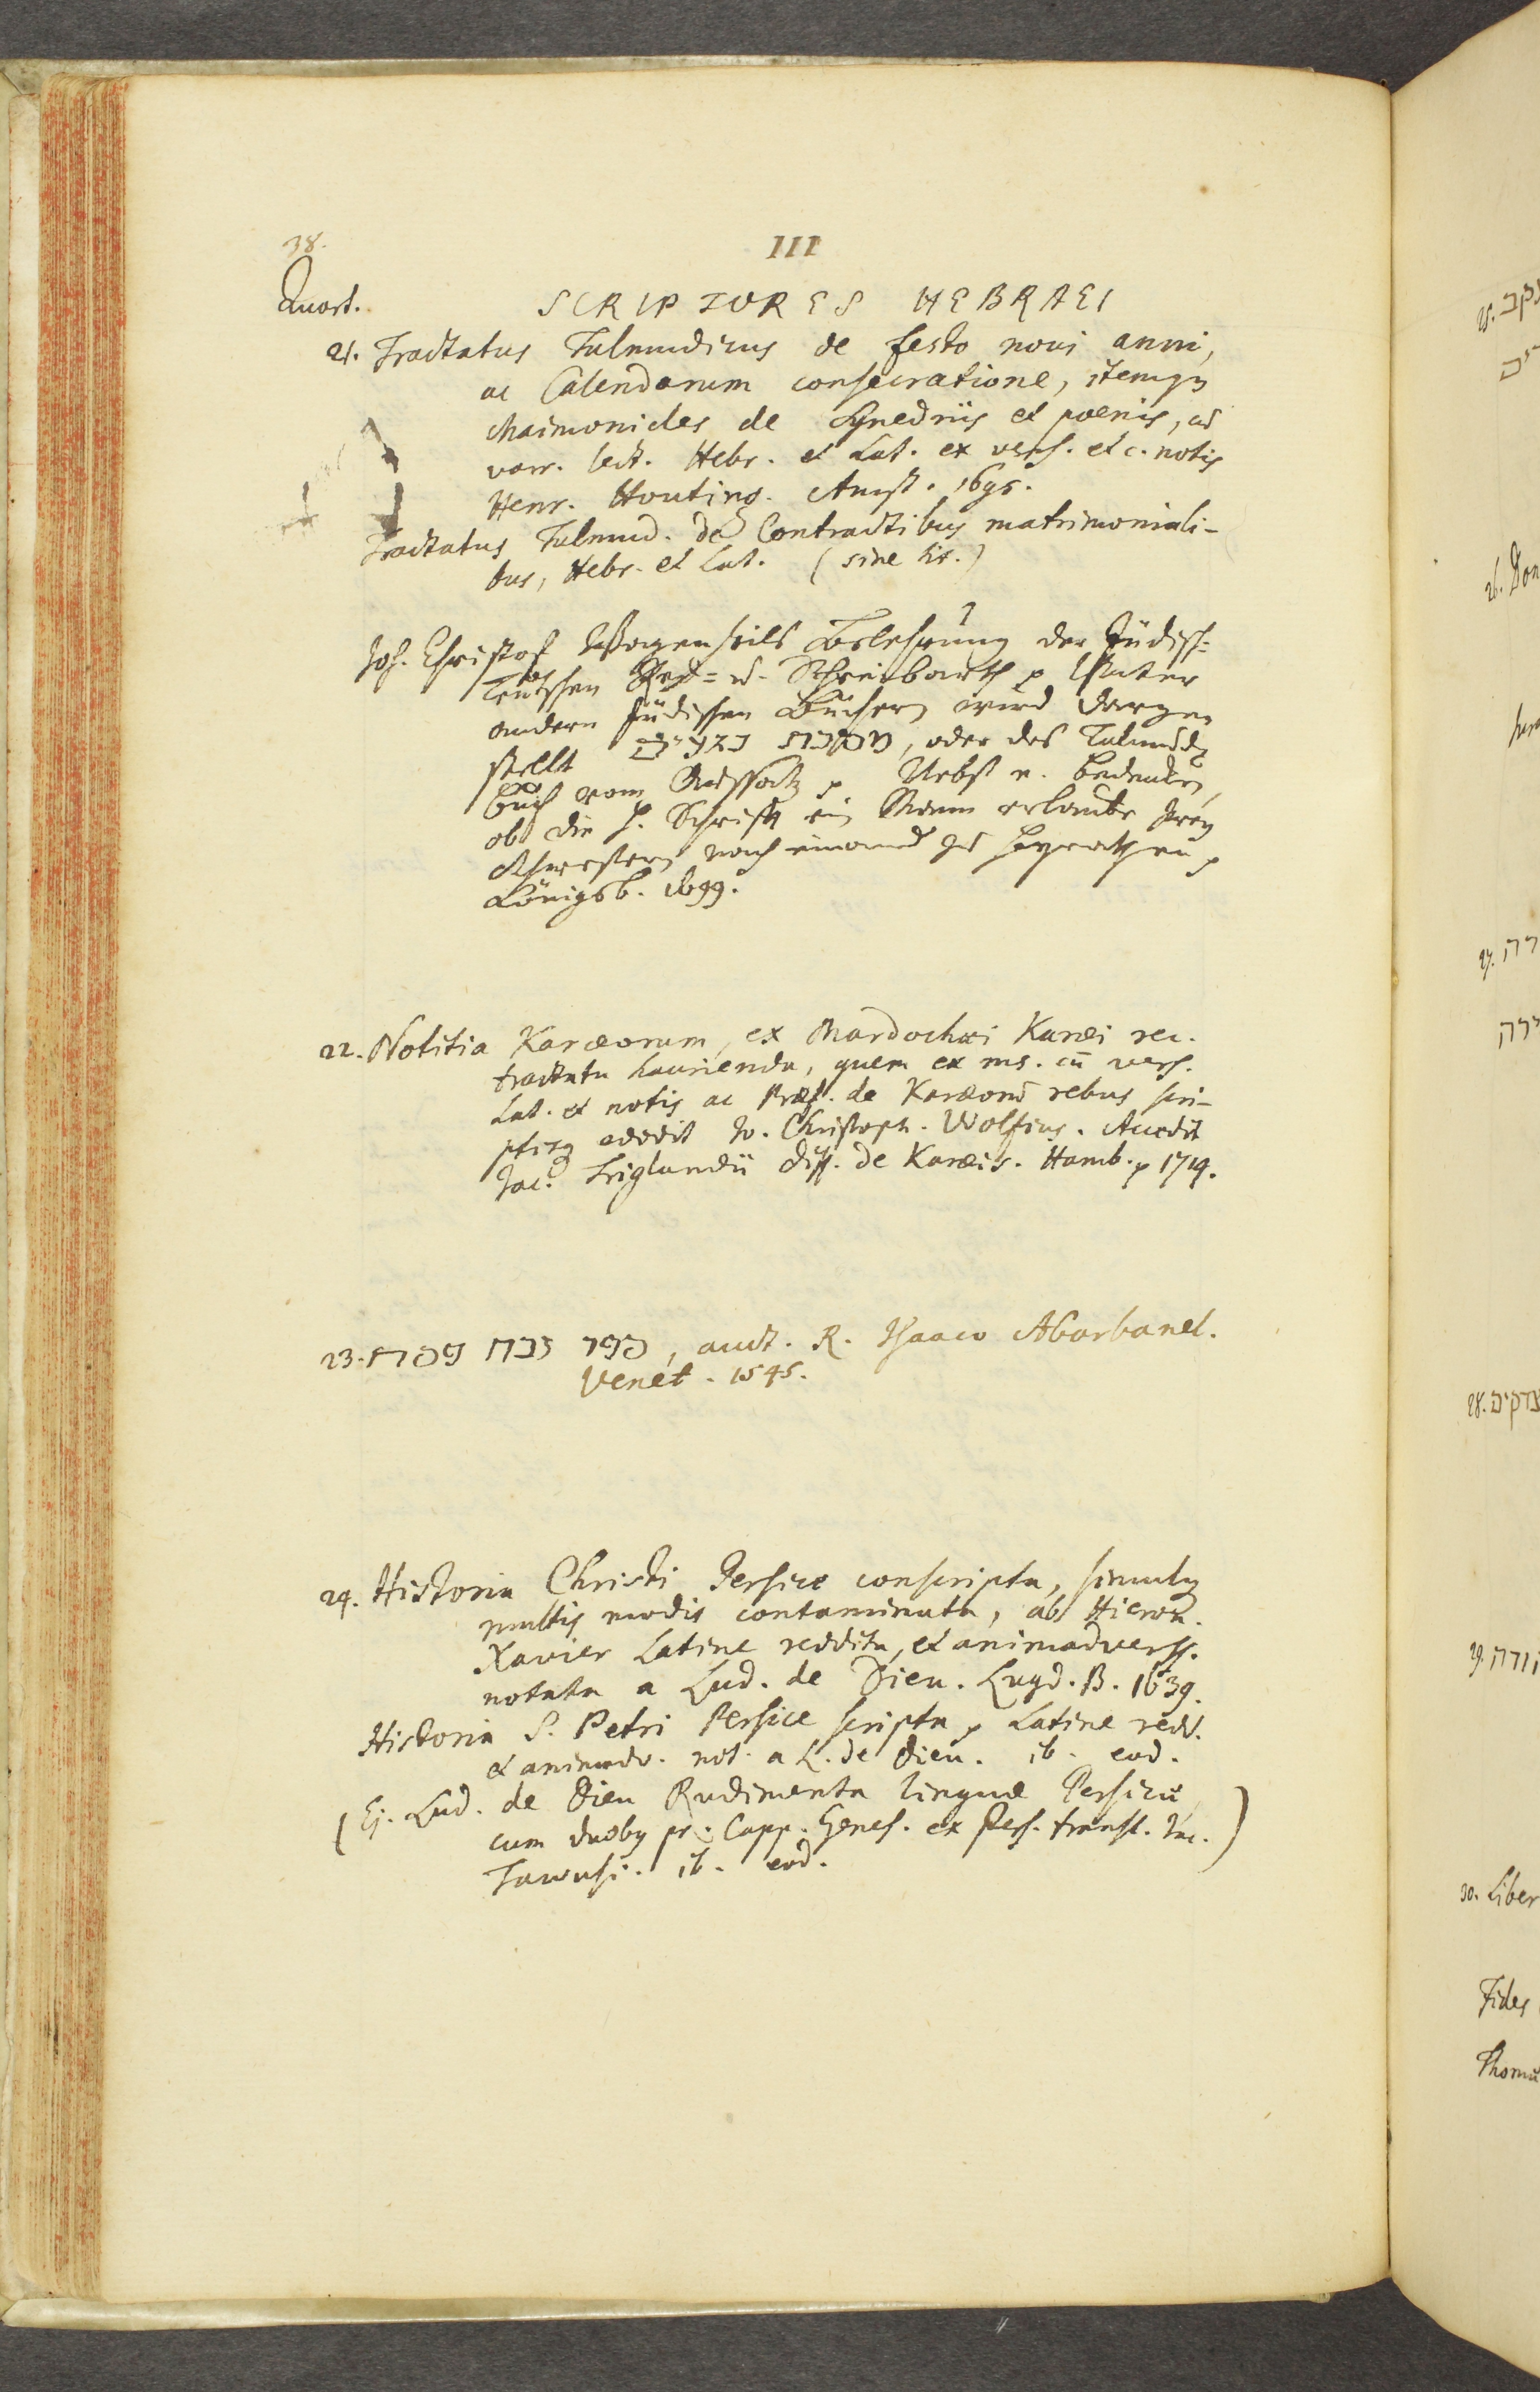 38.
III
Quart.
SCRIPTORES HEBRAEI
21. Tractatus Talmudicus de festo novi anni,
ac Calendarum consecratione, itemq
Maimonides de Synedriis et poenis, ad
varr. lect. Hebr. et Lat. ex vers. et c. notis
Henr. Houting. Amst. 1695.
Tractatus Talmud. de Contractibus matrimoniali-
bus, Hebr. et Lat. (sine tit.)
Joh. Christof Wagenseils Belehrung der Jüdisch-
Teutschen Red- u. Schreibarth p Unter
andern Jüdischen Büchern wird darge
stellt מסכת נגעים, oder des Talmuds
Buch vom Aussatz p Nebst e. Bedencken,
ob die H. Schrift ein Mann erlaube zwey
Schwestern nach einand zu heyrathen p
Königsb. 1699.
22. Notitia Karæorum, ex Mardochæi Karæi rec.
tractatu haurienda, quem ex ms. cū vers.
Lat. et notis ac Præf. de Karæorū rebus scri-
ptisq edidit Jo. Christoph. Wolfius. Accedit
Jac. Triglandii diss. de Karæis. Hamb. p 1714.
23. ספר זבח פסח, auct. R. Isaaco Abarbanel.
Venet. 1545.
24. Historia Christi Persice conscripta, simulq
multis modis contaminata, ab Hieron.
Xavier Latine reddita, et animadverss.
notata a Lud. de Dieu. Lugd. B. 1639.
Historia S. Petri Persice scripta p Latine redd.
et animadv. not. a L. de Dieu. ib. eod.
(Ej. Lud. de Dieu Rudimenta linguæ Persicæ,
cum duobq pr. Capp. Genes. ex Pers. transl. Jac.)
Tawusi. ib. eod.
25.
26. Don
27.
28. צדקים
29.
30. Liber
Fides
Thomæ